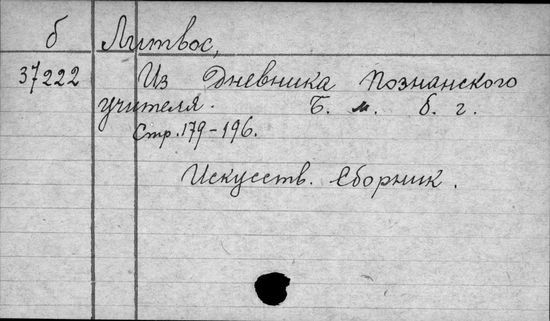 б Литвос,
37222 Из Дневника Познанского
учителя. Б. м. б. г.
Стр. 179-196.
Искусств. Сборник.